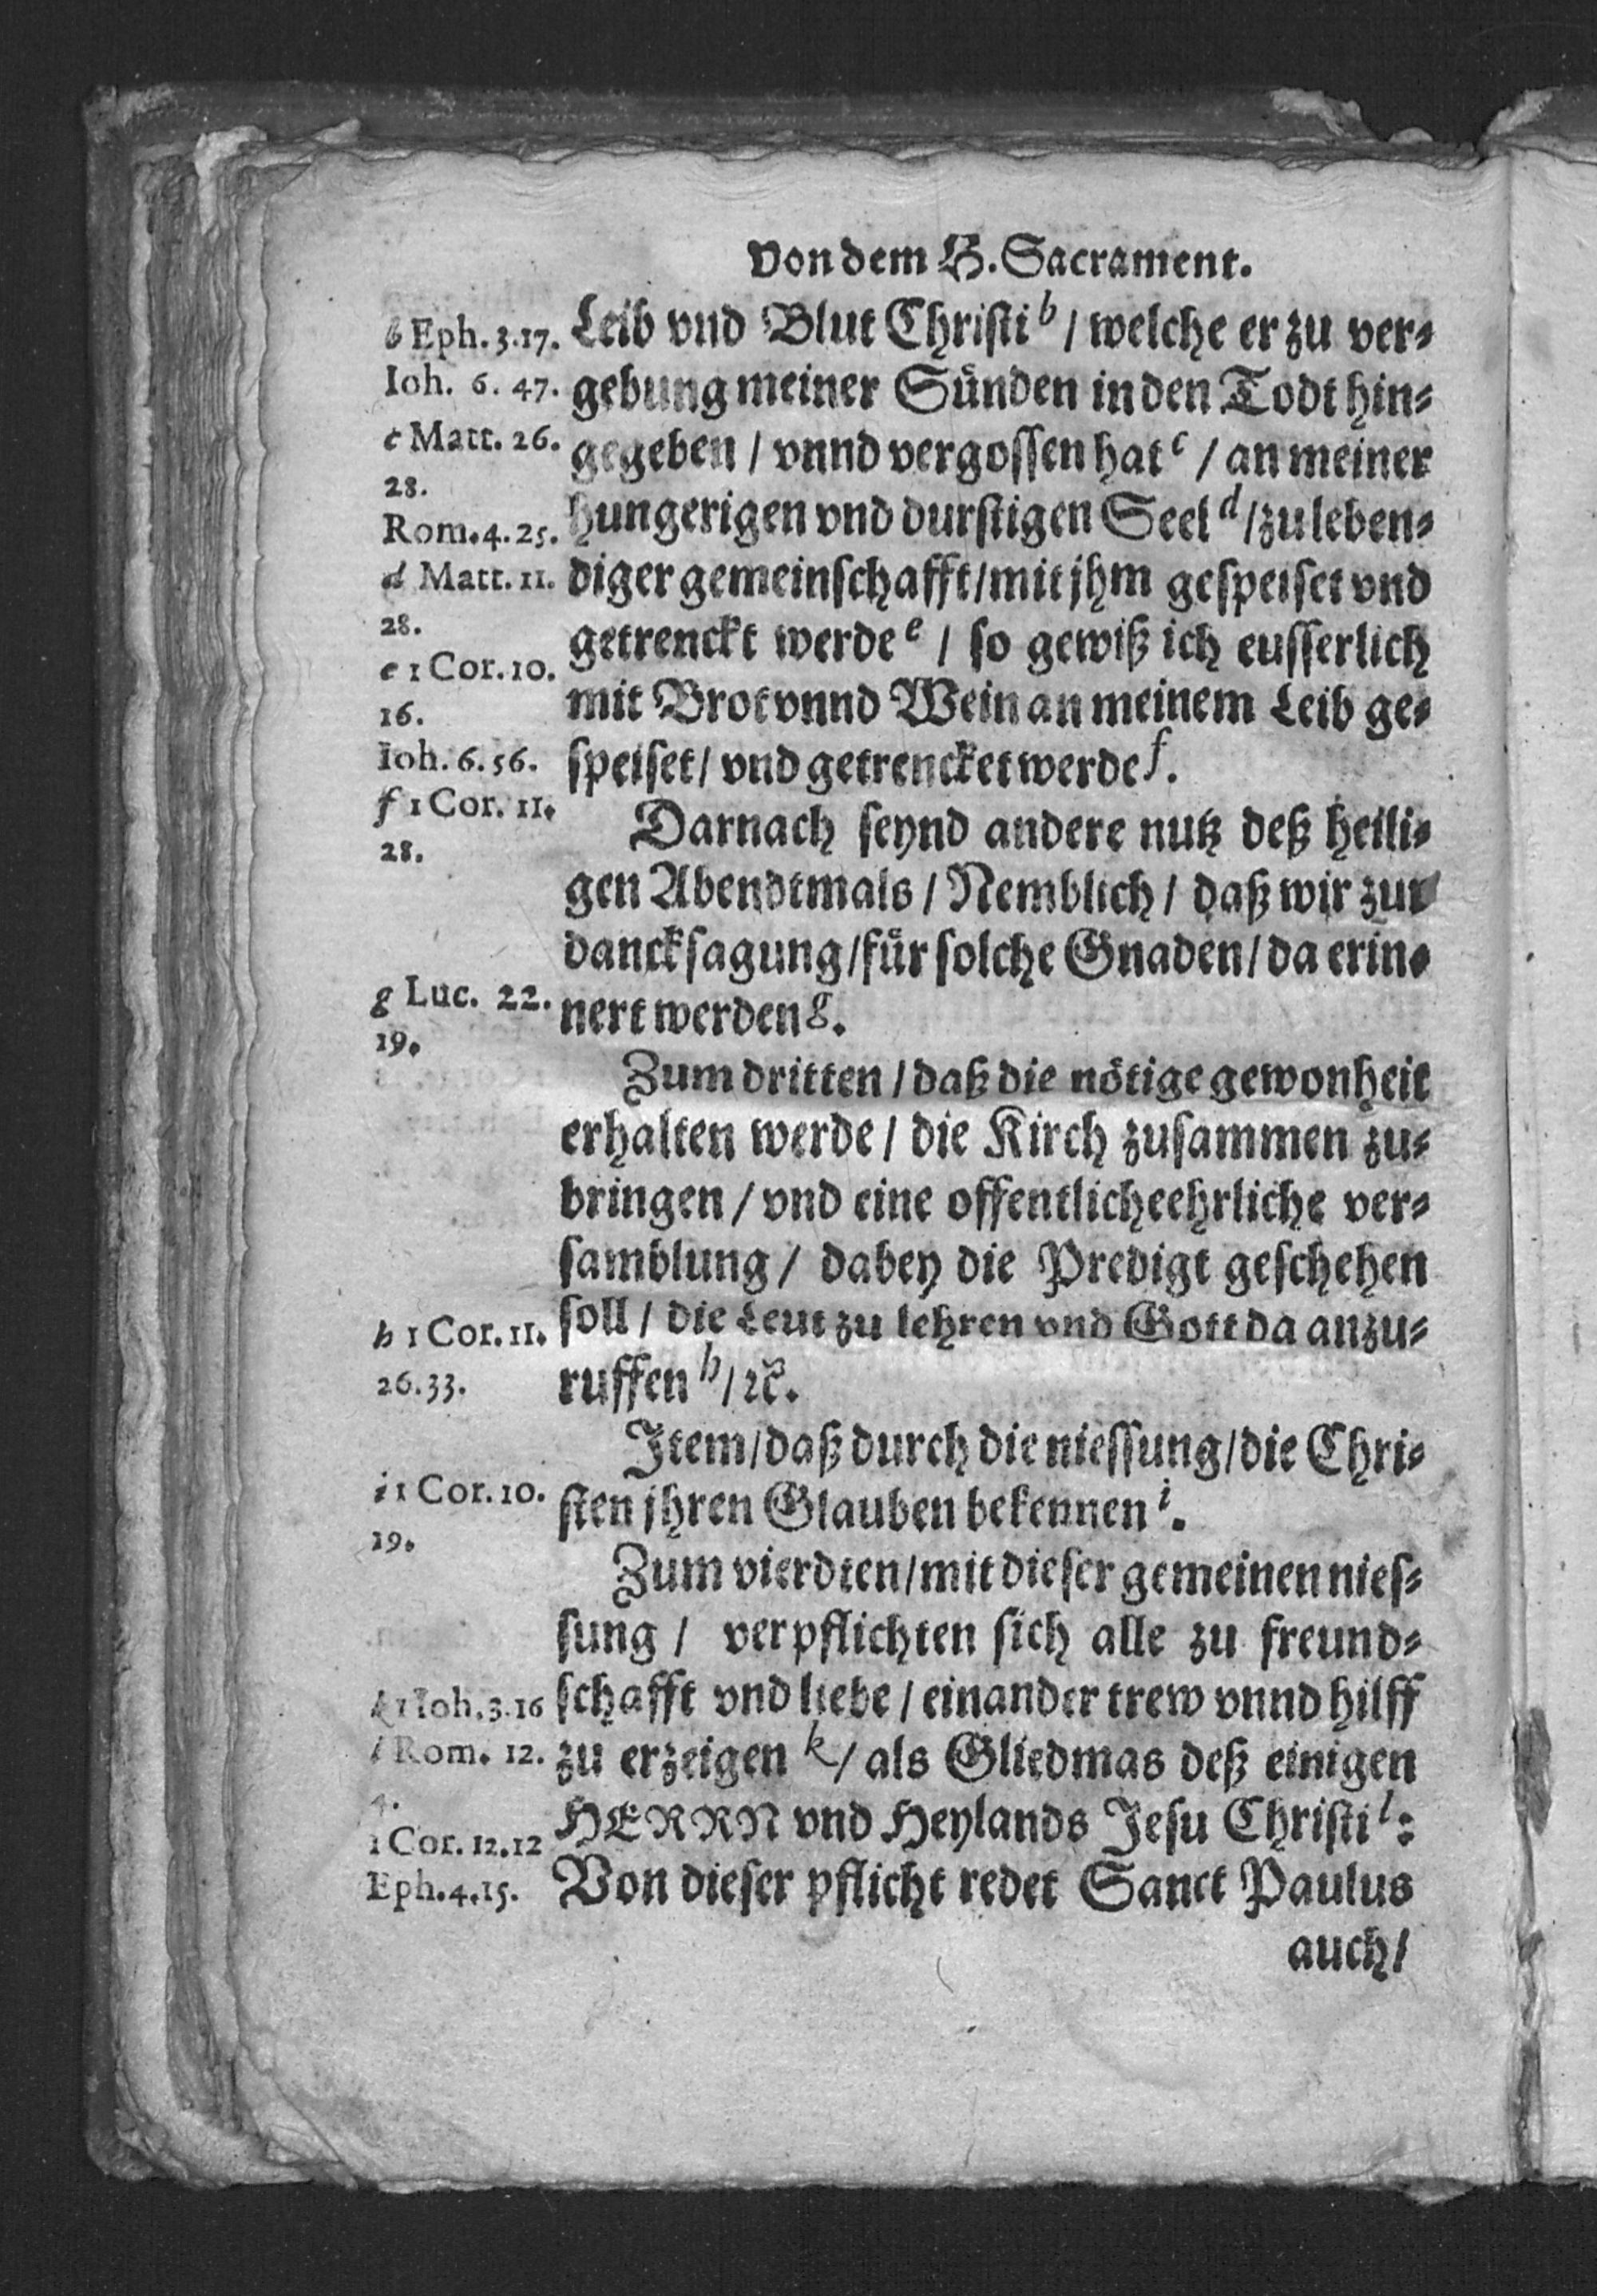 Von dem H. Sacrament.
Leib vnd Blut Christi b / welche er zu ver-
gebung meiner Sünden in den Todt hin-
gegeben / vnnd vergossen hat c / an meiner
hungerigen vnd durstigen Seel d /zu leben-
diger gemeinschafft/mit jhm gespeiset vnd
getrenckt werde e / so gewiß ich eusserlich
mit Brot vnnd Wein an meinem Leib ge-
speiset/ vnd getrencket werde f.
Darnach seynd andere nutz deß heili-
gen Abendtmals / Nemblich / daß wir zur
dancksagung/für solche Gnaden/ da erin-
nert werden g.
Zum dritten / daß die nötige gewonheit
erhalten werde / die Kirch zusammen zu-
bringen / vnd eine offentliche ehrliche ver-
samblung / dabey die Predigt geschehen
soll / die Leut zu lehren vnd Gott da anzu-
ruffen h /ꝛc.
Item/daß durch die niessung/die Chri-
sten jhren Glauben bekennen i.
Zum vierdten/mit dieser gemeinen nies-
sung / verpflichten sich alle zu freund-
schafft vnd liebe / einander trew vnnd hilff
zu erzeigen k / als Gliedmas deß einigen
HERRN vnd Heylands Jesu Christi l:
Von dieser pflicht redet Sanct Paulus
auch/
b Eph. 3.17.
Ioh. 6. 47.
c Matt. 26.
28.
Rom. 4. 25.
d Matt. 11.
28.
e 1 Cor. 10.
16.
Ioh. 6. 56.
f 1 Cor. 11.
28.
g Luc. 22.
19.
h 1 Cor. 11.
26. 33.
i 1 Cor. 10.
19.
k 1 Ioh. 3. 16
l Rom. 12.
4.
1 Cor. 12. 12
Eph. 4. 15.